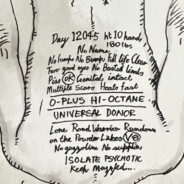 Day 12045 Ht 10 hands
180 lbs
No Name
No Lumps No Bumps Full life Clear
Two good eyes No Busted Limbs
Piss OK Genitals intact
Multiple Scars Heals fast
O-PLUS HI-OCTANE
UNIVERSAL DONOR
Lone Road Warrior Rundown
on the Powder Lakes V8
No guzzoline No supplies
ISOLATE PSYCHOTIC
Keep Muzzled...